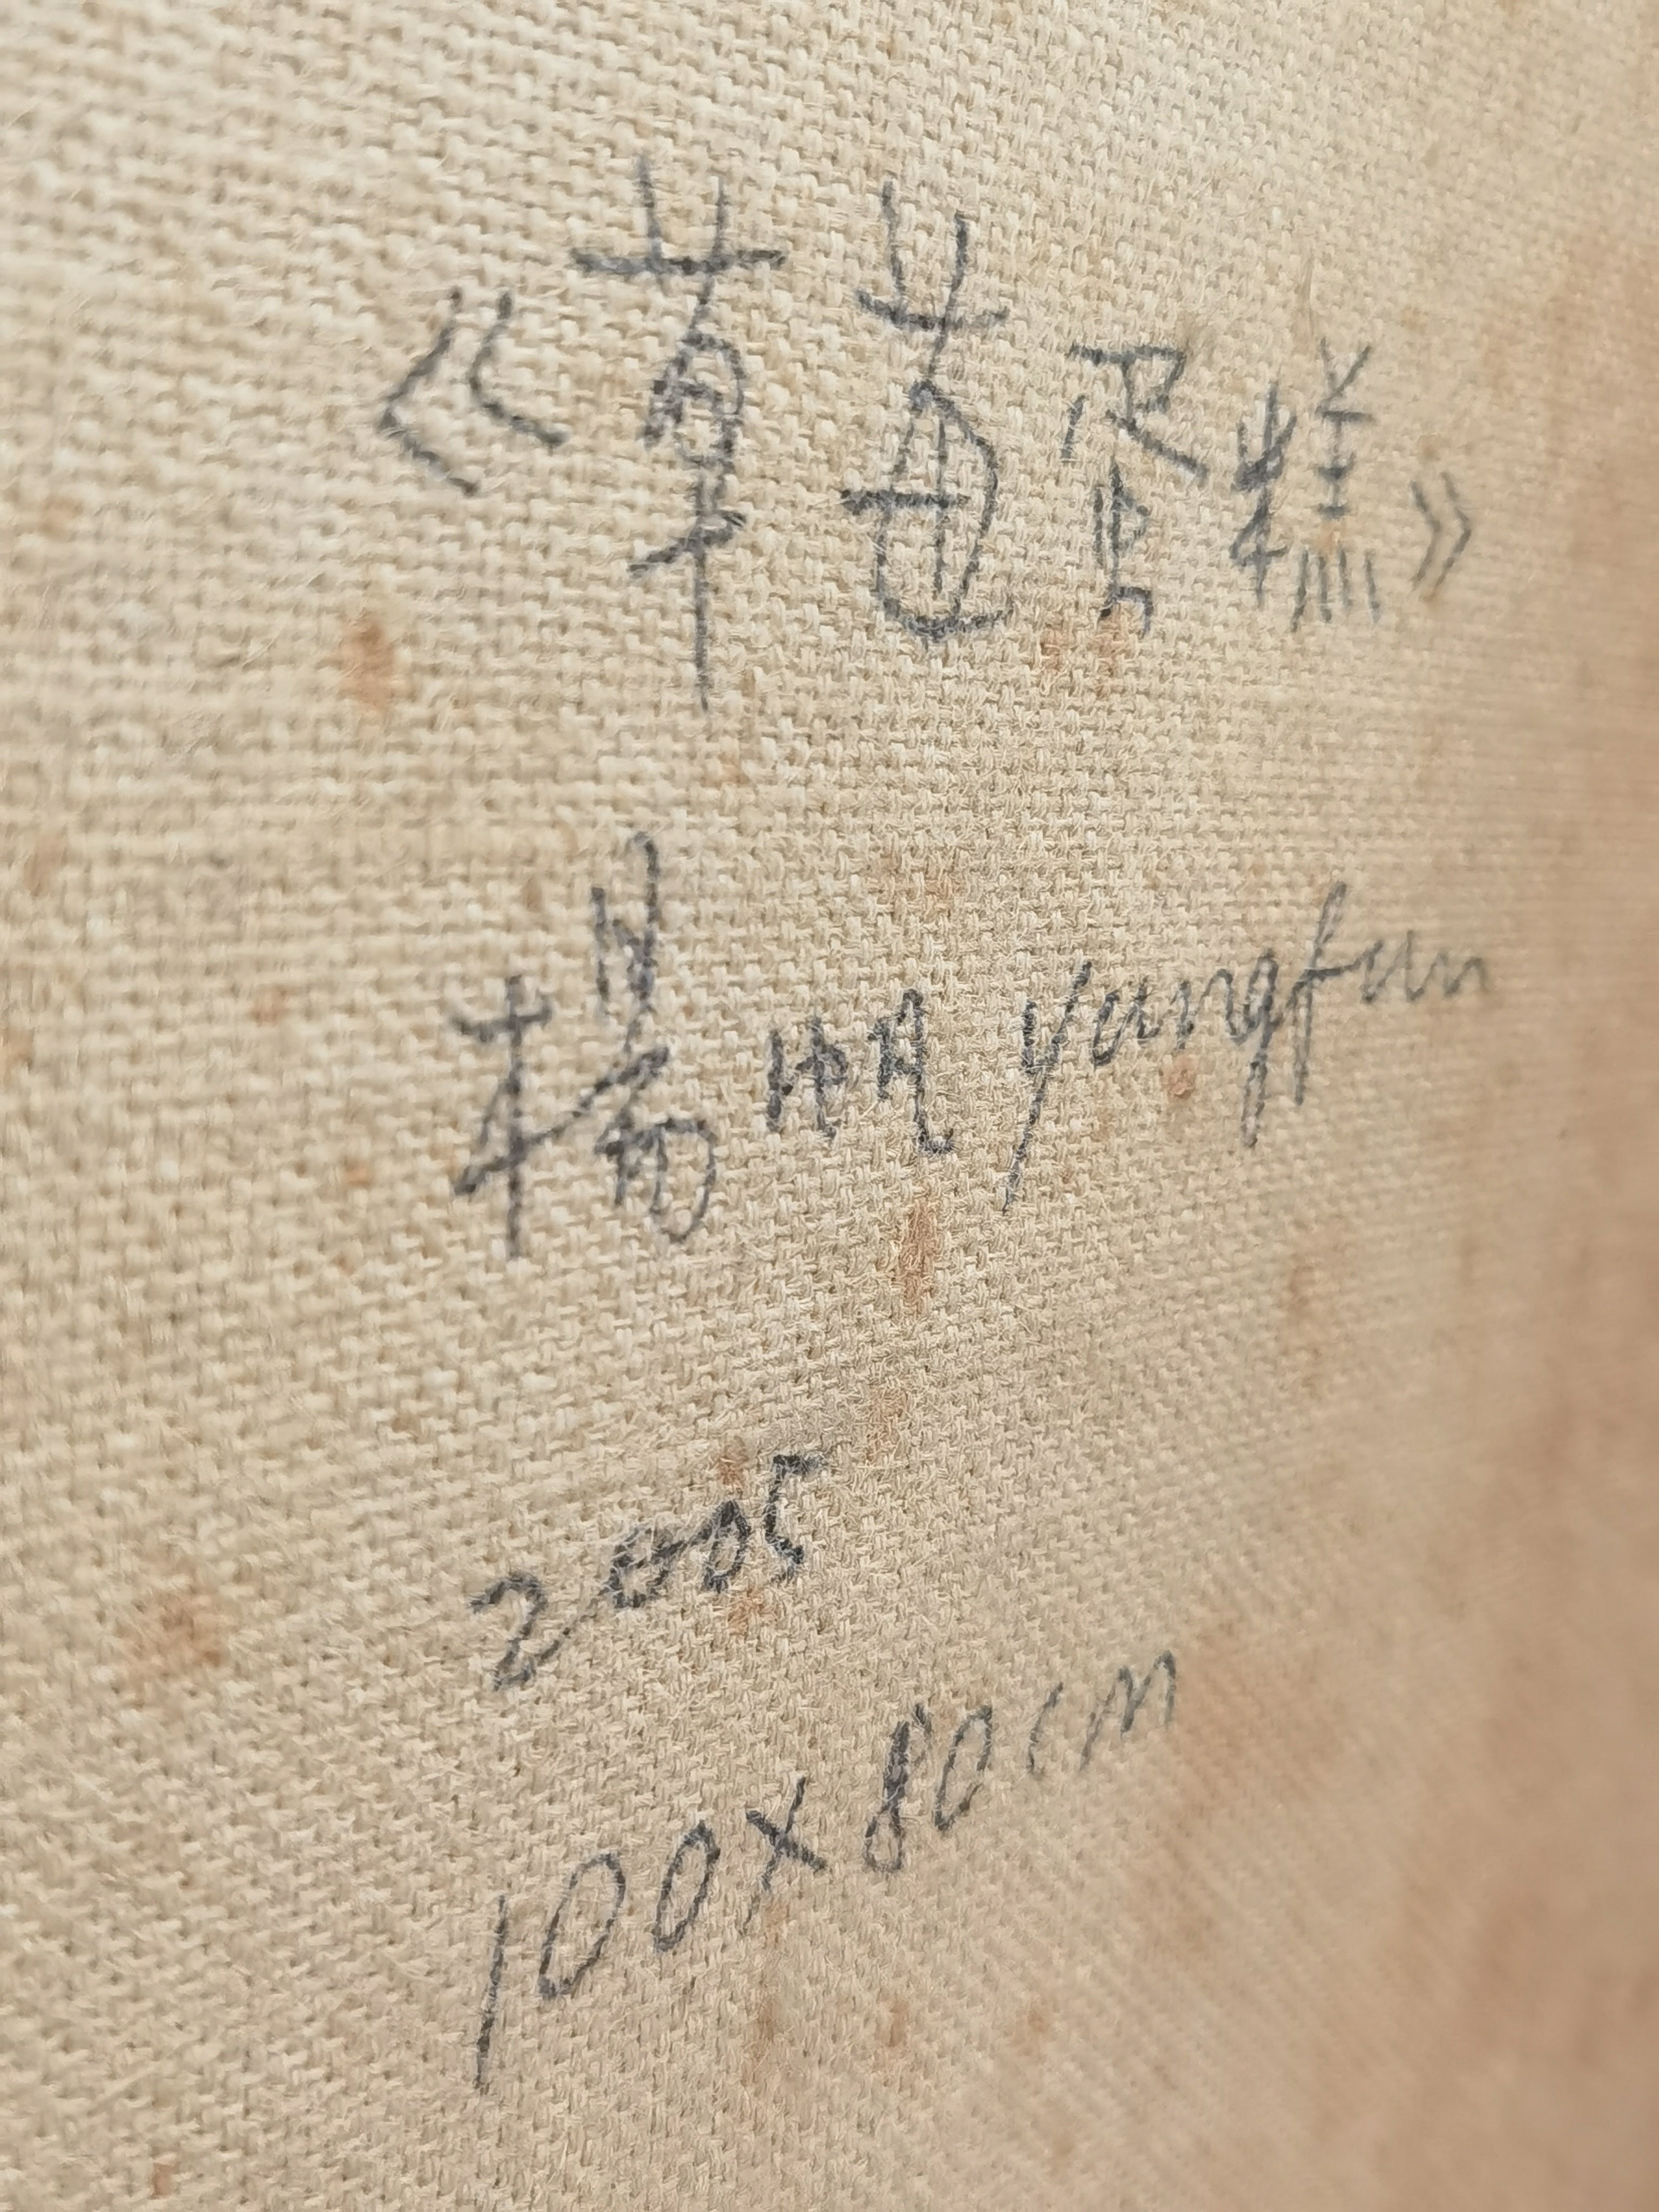 《草莓蛋糕》
杨帆 yangfan
2005
100×80cm